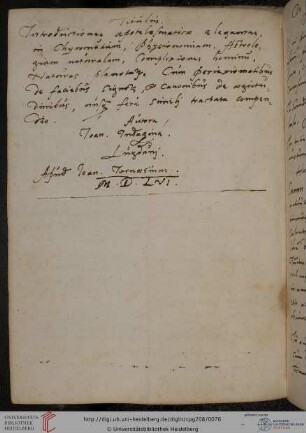 Titulus.
Introductiones apotelesmaticæ elegantes,
in Chyromantiam, Physionomiam, Astrolo-
giam naturalem, Complexiones hominum,
Naturas planetarum. Cum periaxiomatibus
de faciebus Signorum, et Canonibus de ægritu-
dinibus, nusquam ferè simili tractata compen-
dio.
Autore
Joan. Indagine.
Lugduni,
Apud Joan. Tornæsium.
M. D. LVI.
UNIVERSITÄTS-
BIBLIOTHEK
HEIDELBERG
http://digi.ub.uni-heidelberg.de/diglit/cpg208/0076
© Universitätsbibliothek Heidelberg